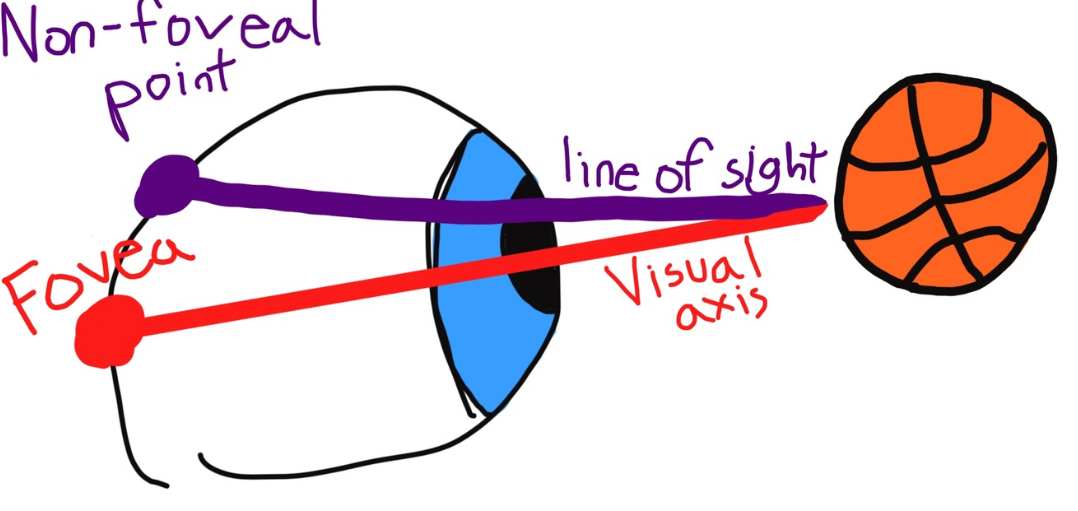 Non-foveal
point
line of sight
Fovea
Visual
axis